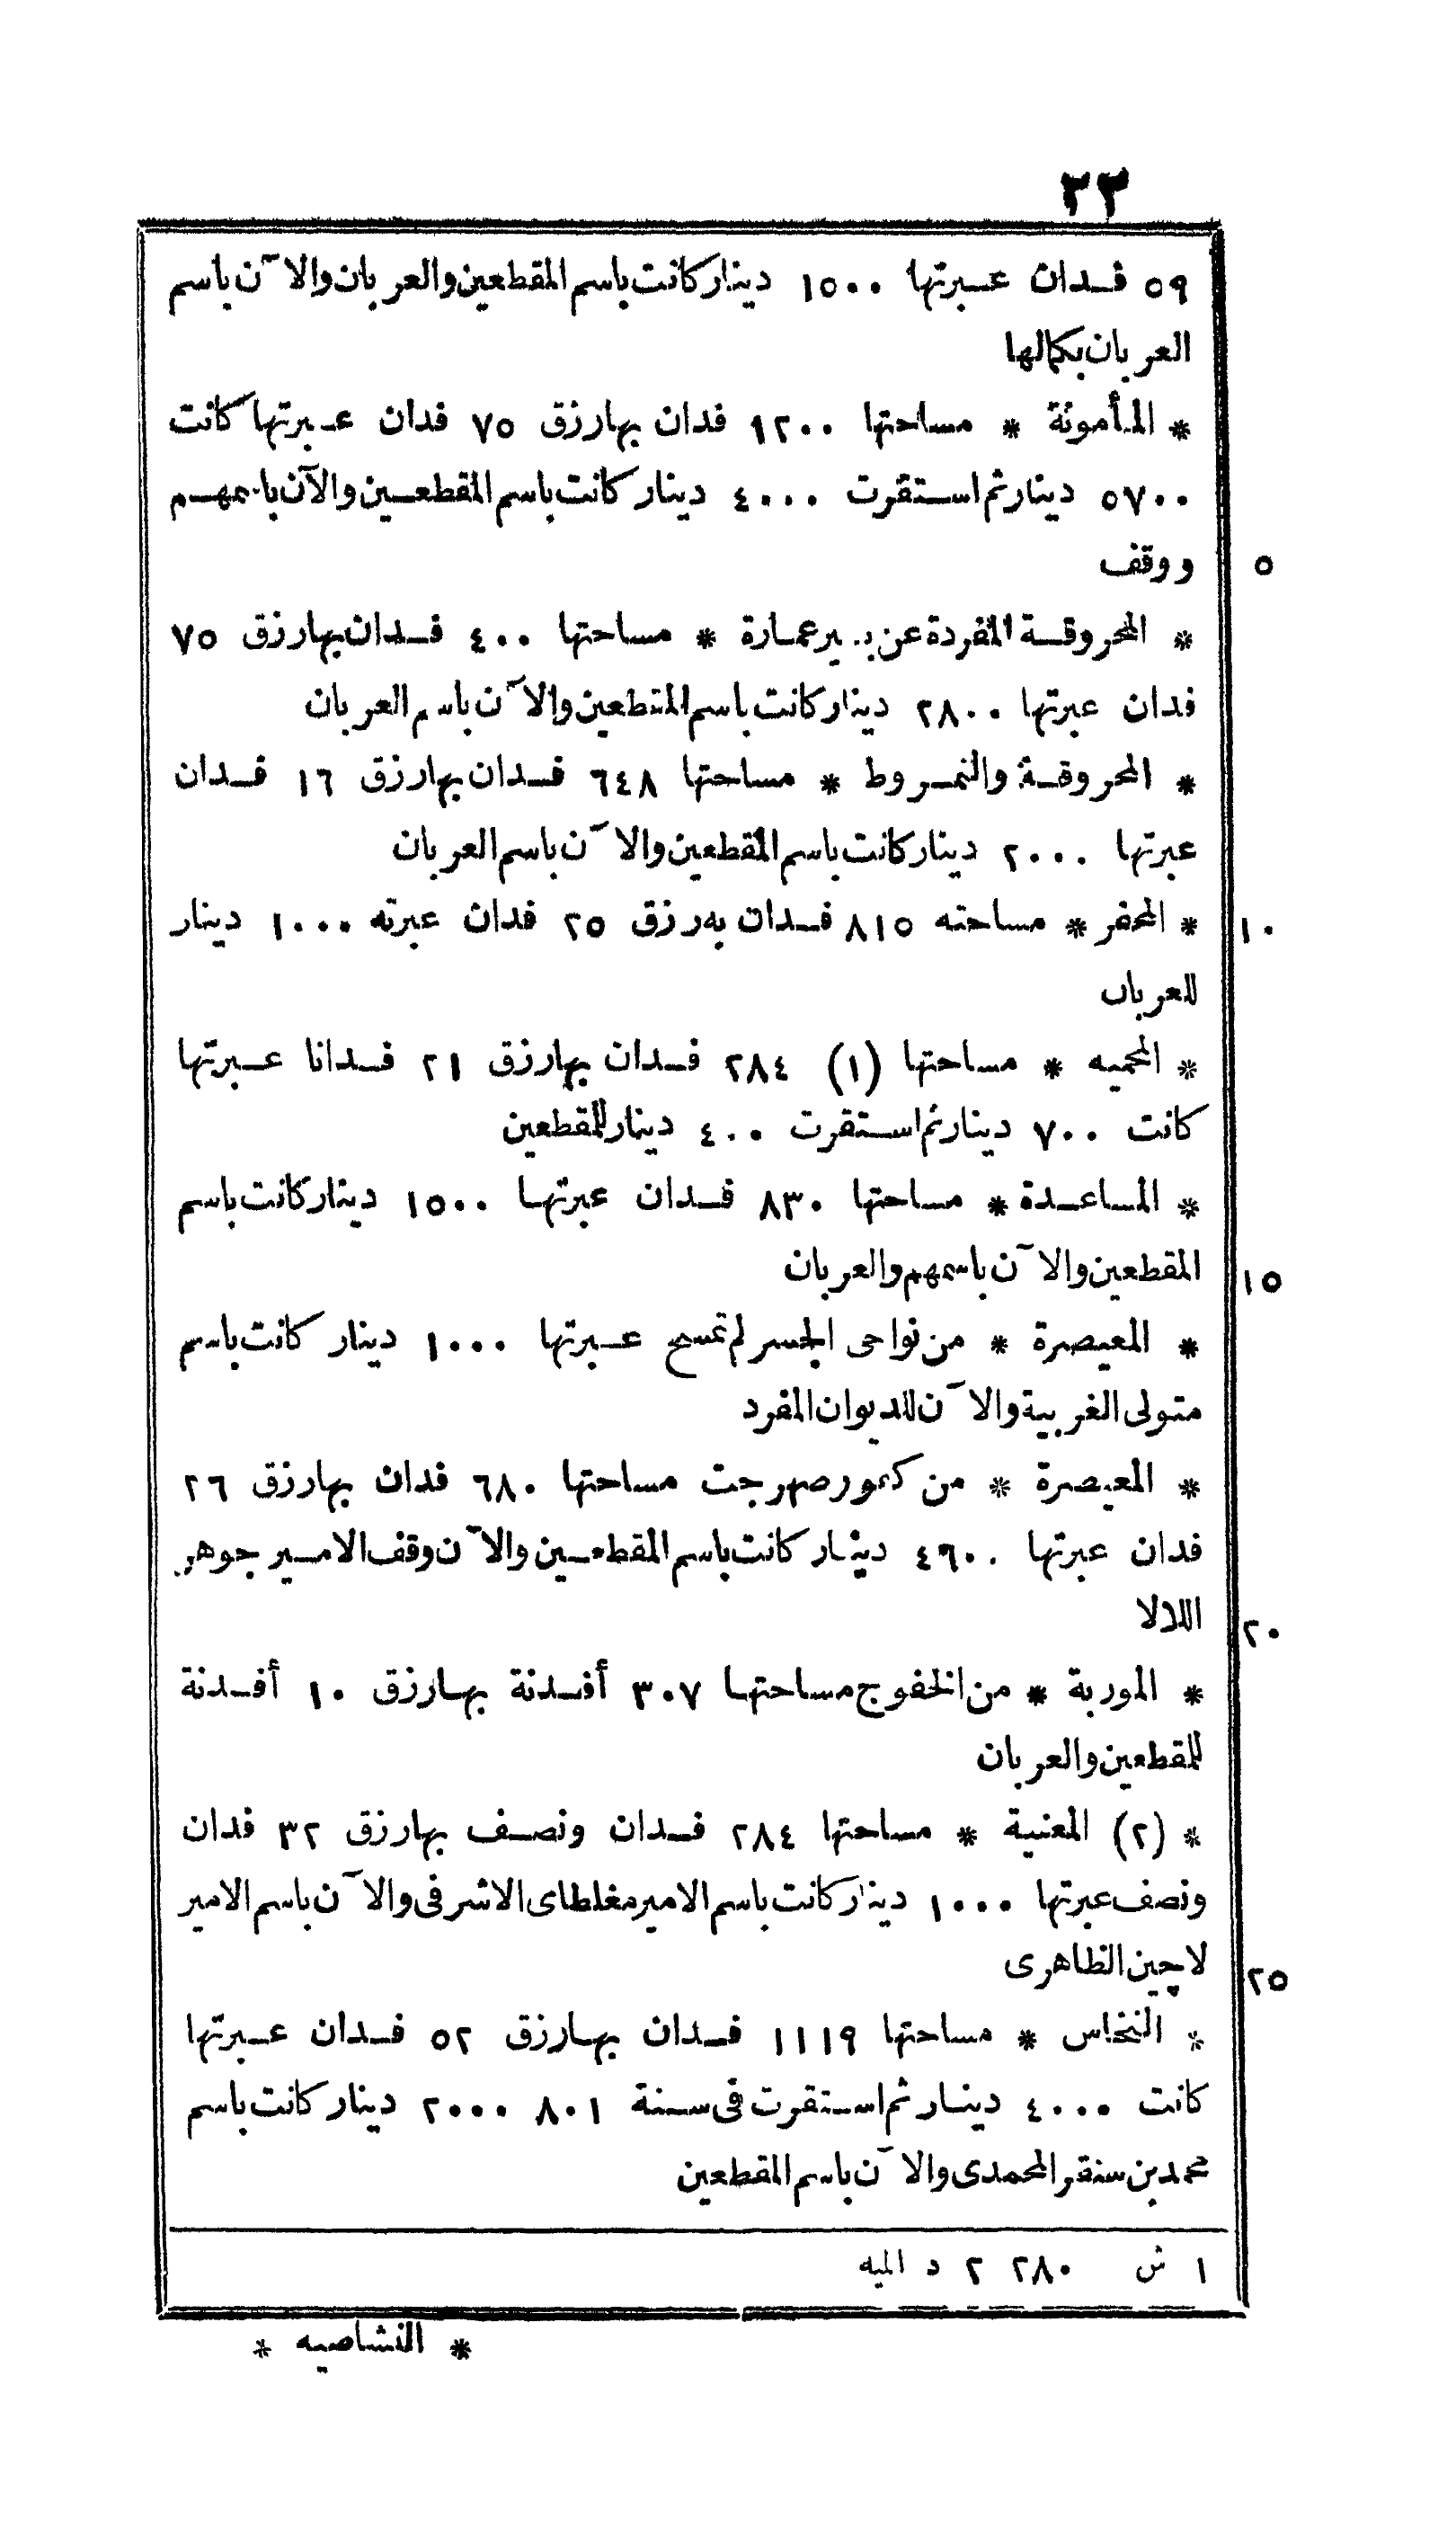 ٣٣
٥٩ فدان عبرتها ١٥٠٠ دينار كانت باسم المقطعين والعربان والآن باسم
العربان بكمالها
* المأمونة * مساحتها ١٢٠٠ فدان بها رزق ٧٥ فدان عبرتها كانت
٥٧٠٠ دينار ثم استقرت ٤٠٠٠ دينار كانت باسم المقطعين والآن باسمهم
ووقف ٥
* المحروقة المفردة عن ببير عمارة * مساحتها ٤٠٠ فدان بها رزق ٧٥
فدان عبرتها ٢٨٠٠ دينار كانت باسم المقطعين والآن باسم العربان
* المحروقة والنمروط * مساحتها ٦٤٨ فدان بها رزق ١٦ فدان
عبرتها ٢٠٠٠ دينار كانت باسم المقطعين والآن باسم العربان
* المحفر * مساحته ٨١٥ فدان به رزق ٢٥ فدان عبرته ١٠٠٠ دينار ١٠
للعربان
* المحميه * مساحتها (١) ٢٨٤ فدان بها رزق ٢١ فدانا عبرتها
كانت ٧٠٠ دينار ثم استقرت ٤٠٠ دينار للمقطعين
* المساعدة * مساحتها ٨٣٠ فدان عبرتها ١٥٠٠ دينار كانت باسم
المقطعين والآن باسمهم والعربان ١٥
* المعيصرة * من نواحى الجسر لم تمسح عبرتها ١٠٠٠ دينار كانت باسم
متولى الغربية والآن للديوان المفرد
* المعيصرة * من كفور صهرجت مساحتها ٦٨٠ فدان بها رزق ٢٦
فدان عبرتها ٤٦٠٠ دينار كانت باسم المقطعين والآن وقف الامير جوهر
اللالا ٢٠
* المورية * من الخفوج مساحتها ٣٠٧ أفدنة بها رزق ١٠ أفدنة
للمقطعين والعربان
* (٢) المعنية * مساحتها ٢٨٤ فدان ونصف بها رزق ٣٢ فدان
ونصف عبرتها ١٠٠٠ دينار كانت باسم الامير مغلطاى الاشرفى والآن باسم الامير
لاچين الظاهرى ٢٥
* النخاس * مساحتها ١١١٩ فدان بها رزق ٥٢ فدان عبرتها
كانت ٤٠٠٠ دينار ثم استقرت فى سنة ٨٠١ ٢٠٠٠ دينار كانت باسم
محمد بن سنقر المحمدى والآن باسم المقطعين
١ ش ٢٨٠ ٢ د الميه
* النشاصيه *